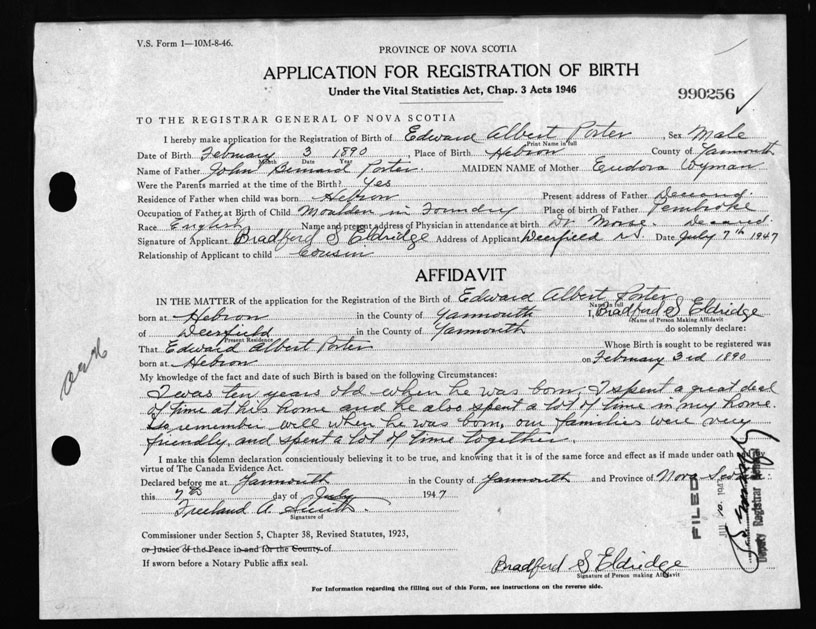 V.S. Form 1—10M-8-46.
PROVINCE OF NOVA SCOTIA
APPLICATION FOR REGISTRATION OF BIRTH
Under the Vital Statistics Act, Chap. 3 Acts 1946
990256
TO THE REGISTRAR GENERAL OF NOVA SCOTIA
I hereby make application for the Registration of Birth of Edward Albert Porter, Sex Male
Print Name in full
Date of Birth February 3 1890, Place of Birth Hebron County of Yarmouth
Month Date Year
Name of Father John Bernard Porter. MAIDEN NAME of Mother Eudora Wyman
Were the Parents married at the time of the Birth? Yes
Residence of Father when child was born Hebron Present address of Father
Occupation of Father at Birth of Child Moulder in Foundry Place of birth of Father Pembroke
Race English Name and present address of Physician in attendance at birth Dr Morse.
Signature of Applicant Bradford S Eldridge Address of Applicant Deerfield N.S. Date July 7th 1947
Relationship of Applicant to child Cousin
AFFIDAVIT
IN THE MATTER of the application for the Registration of the Birth of Edward Albert Porter
Name in full
born at Hebron in the County of Yarmouth I, Bradford S Eldridge
Name of Person Making Affidavit
of Deerfield in the County of Yarmouth do solemnly declare:
Present Residence
That Edward Albert Porter Whose Birth is sought to be registered was
born at Hebron on February 3rd 1890
My knowledge of the fact and date of such Birth is based on the following Circumstances:
I was ten years old when he was born, I spent a great deal
of time at his home and he also spent a lot of time in my home.
remember well when he was born, our families were very
friendly, and spent a lot of time together.
I make this solemn declaration conscientiously believing it to be true, and knowing that it is of the same force and effect as if made under oath
virtue of The Canada Evidence Act.
Declared before me at Yarmouth in the County of Yarmouth and Province of Nova
this day of July 1947
Freeland A. Smith
Signature of
Commissioner under Section 5, Chapter 38, Revised Statutes, 1923,
or Justice of the Peace in and for the County of
If sworn before a Notary Public affix seal.
Bradford S Eldridge
Signature of Person making Affidavit
For Information regarding the filling out of this Form, see instructions on the reverse side.
FILED
Deputy Registrar General